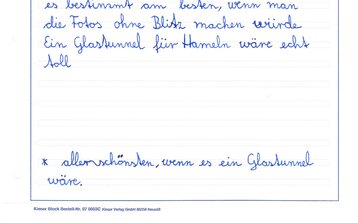 es bestimmt am besten, wenn man
die Fotos ohne Blitz machen würde
Ein Glastunnel für Hameln wäre echt
toll
* allerschönsten, wenn es ein Glastunnel
wäre.
Kieser Block Bestell-Nr. 07 0603C Kieser Verlag GmbH 86356 Neusäß